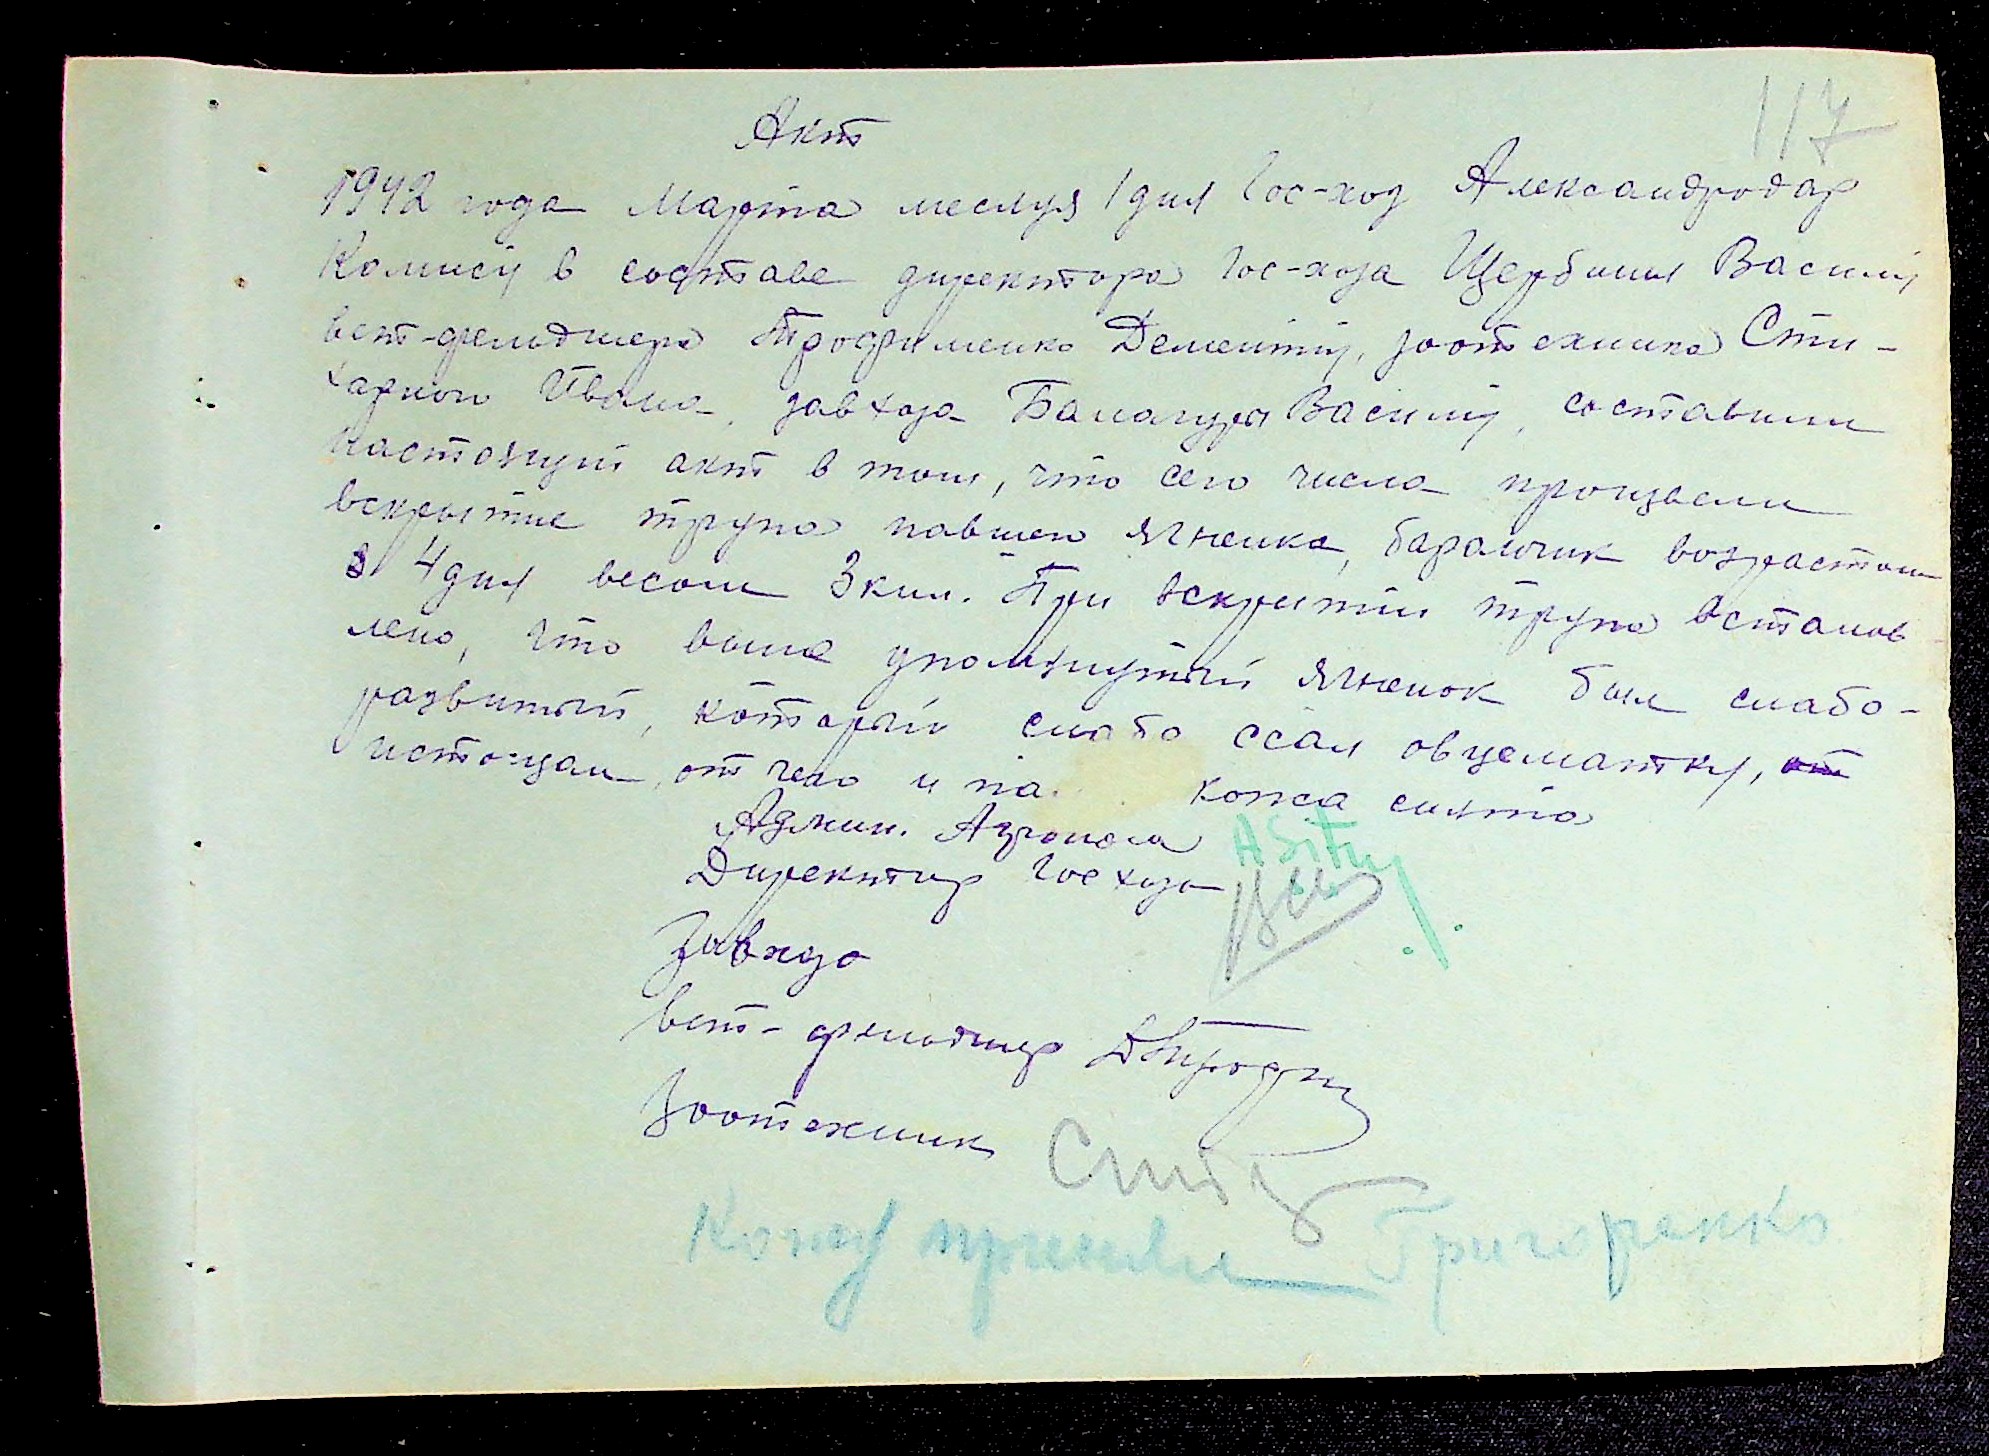 117
Акт
1942 года Марта месяця 1 дня Гос-хоз Александродар
Комисия в составе директора Гос-хоза Щербины Василия
вет-фельдшера Трофименко Дементия, зоотехника Сти-
харного Ивана, завхоза Балагура Василия, составили
настоящий акт в том, что сего числа произвели
вскрытие трупа павшего ягненка, баранчик возрастом
в 4 дня весом 3 кил. При вскрытии трупа встанов
лено, что выше упомянутый ягненок был слабо-
развитый, который слабо ссал овцематку,
истощал, от чего и па кожа снята
Админ. Агроном
Директор Госхоза
Завхоз
Вет-фельдшер ДТроф
Зоотехник Сти
Кожу приняли Григоренко